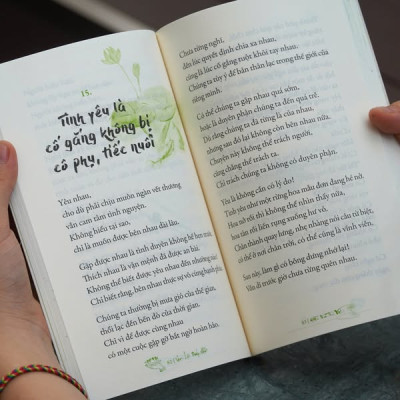 15.
Tình yêu là
cố gắng không bị
cô phụ, tiếc nuối
Yêu nhau,
cho dù phải chịu muôn ngàn vết thương
vẫn cam tâm tình nguyện.
Không hiểu tại sao,
chỉ là muốn được bên nhau dài lâu.
Gặp được nhau là tình duyên không hề hẹn trước,
Thích nhau là vận mệnh đã được an bài.
Không thể biết được yêu nhau đến nhường nào
Chỉ biết rằng, bên nhau thực sự vô cùng hạnh phúc.
Chúng ta thường bị mưa gió của thế gian,
thổi lạc đến bên đò của thời gian.
Chỉ vì để được cùng nhau
có một cuộc gặp gỡ bất ngờ hoàn hảo.
Chưa từng nghĩ,
đến lúc quyết định chia xa nhau,
cũng là lúc cố gắng một khỏi tay nhau.
Chúng ta tùy ý để bản thân lạc trong thế giới của
riêng mình.
Có thể chúng ta gặp nhau quá sớm,
hoặc là duyên phận chúng ta đến quá trễ.
Dù rằng chúng ta đã từng là của nhau,
nhưng sau đó lại không còn bên nhau nữa.
Chuyện này không thể trách người,
càng chẳng thể trách ta.
Chỉ trách chúng ta không có duyên phận.
Yêu là không cần có lý do!
Tình yêu như một rừng hoa mẫu đơn đang hé nở.
Hoa nở rồi thì không thể nhìn thấy nữa,
hoa tàn rồi liền rụng xuống hư vô.
Chân thành quay lưng, nhẹ nhàng nói câu từ biệt,
có thể ở nơi chân trời, có thể cũng là vĩnh viễn.
Sau này, làm gì có bông đừng nhớ lại!
Vẫn đi trước giờ chưa từng quên nhau.